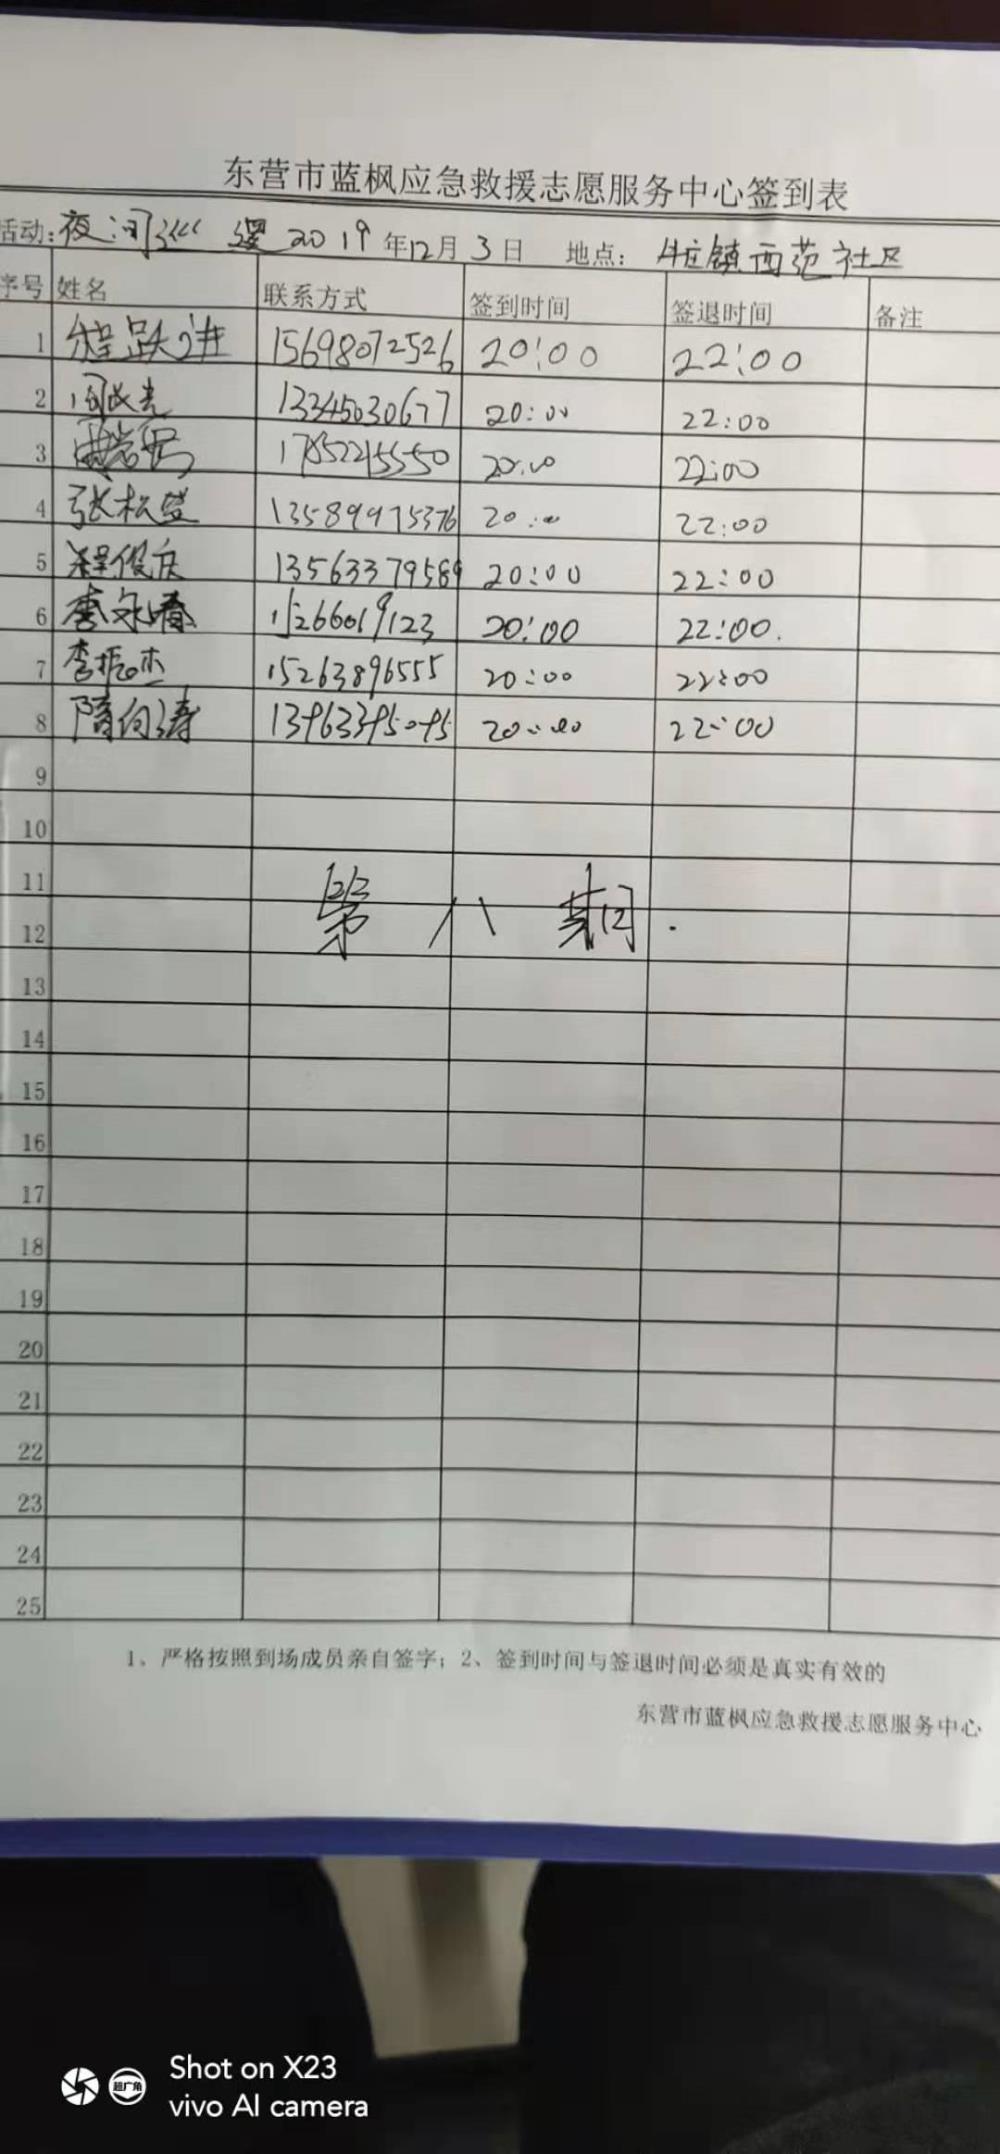 东营市蓝枫应急救援志愿服务中心签到表
活动: 夜间巡逻 2019年12月3日 地点: 牛庄镇西范社区
序号 姓名 联系方式 签到时间 签退时间 备注
1 程跃进 15698072526 20:00 22:00
2 闫成光 13345030677 20:00 22:00
3 20:00 22:00
4 张松 13589975376 20:00 22:00
5 程俊庆 13563379589 20:00 22:00
6 李永春 15266019123 20:00 22:00.
7 李振杰 15263896555 20:00 22:00
8 隋向涛 20:00 22:00
9
10
11
第八期.
12
13
14
15
16
17
18
19
20
21
22
23
24
25
1、严格按照到场成员亲自签字；2、签到时间与签退时间必须是真实有效的
东营市蓝枫应急救援志愿服务中心
超广角
Shot on X23
vivo AI camera